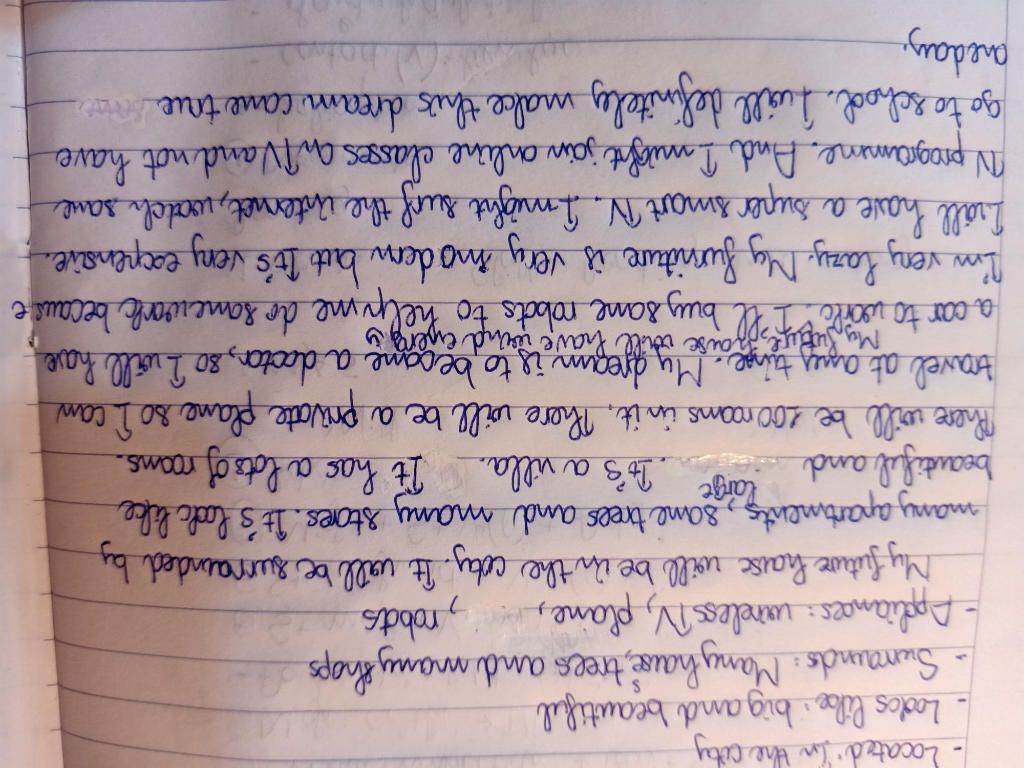 - Located: in the city
- Looks like: big and beautiful
- Surrounds: Many houses, trees and many shops
- Appliances: wireless TV, plane, robots
My future house will be in the city. It will be surrounded by
many apartments, some trees and many stores. It's look like
large
beautiful and It's a villa. It has a lots of rooms.
There will be 100 rooms in it. There will be a private plane so I can
travel at any time. My dream is to become a doctor, so I will have
My future house will have wind energy
a car to work. I'll buy some robots to help me do some work because
I'm very lazy. My furniture is very modern but It's very expensive.
I will have a super smart TV. I might surf the internet, watch some
TV programme. And I might join online classes on TV and not have
go to school. I will definitely make this dream come true
one day.